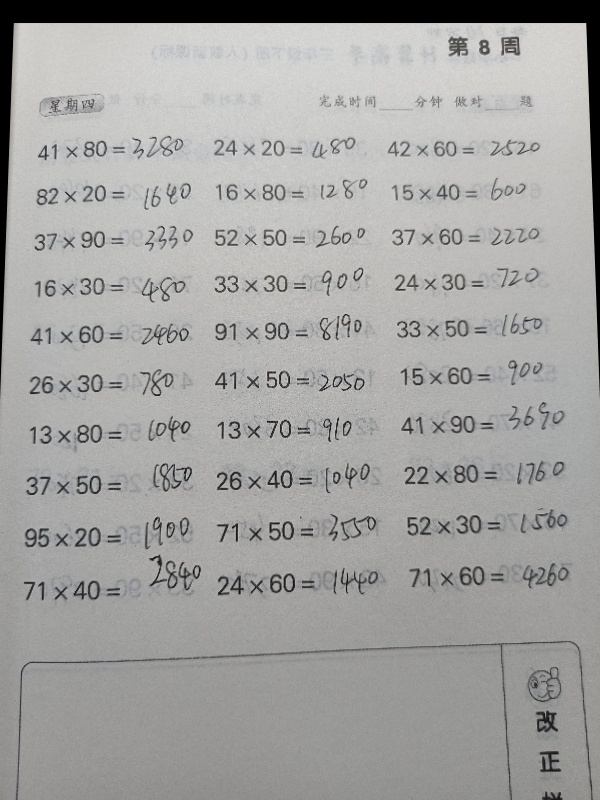 第 8 周
星期四 完成时间____分钟 做对____题
41×80=3280 24×20=480 42×60=2520
82×20=1640 16×80=1280 15×40=600
37×90=3330 52×50=2600 37×60=2220
16×30=480 33×30=900 24×30=720
41×60=2460 91×90=8190 33×50=1650
26×30=780 41×50=2050 15×60=900
13×80=1040 13×70=910 41×90=3690
37×50=1850 26×40=1040 22×80=1760
95×20=1900 71×50=3550 52×30=1560
71×40=2840 24×60=1440 71×60=4260
改
正